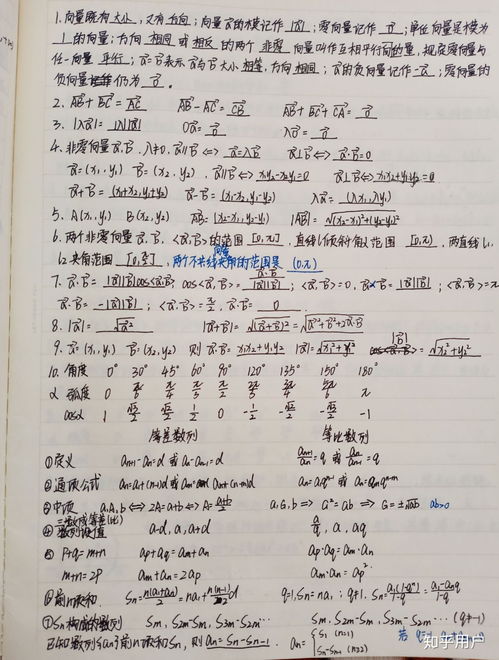 1. 向量既有大小,又有方向;向量a⃗的模记作|a⃗|;零向量记作0⃗;单位向量是模为
1的向量;方向相同或相反的两个非零向量叫作互相平行的向量,规定零向量与
任一向量平行;a⃗=b⃗表示a⃗与b⃗大小相等,方向相同;a⃗的负向量记作-a⃗;零向量的
负向量仍为0⃗。
2. AB⃗+BC⃗=AC⃗ AB⃗-AC⃗=CB⃗ AB⃗+BC⃗+CA⃗=0⃗
3. |λa⃗|=|λ||a⃗| 0a⃗=0⃗ λ0⃗=0⃗
4. 非零向量a⃗,b⃗,λ≠0,a⃗∥b⃗⇔a⃗=λb⃗ a⃗⊥b⃗⇔a⃗·b⃗=0
a⃗=(x₁,y₁) b⃗=(x₂,y₂),a⃗∥b⃗⇔x₁y₂-x₂y₁=0 a⃗⊥b⃗⇔x₁x₂+y₁y₂=0
a⃗+b⃗=(x₁+x₂,y₁+y₂) a⃗-b⃗=(x₁-x₂,y₁-y₂) λa⃗=(λx₁,λy₁)
5. A(x₁,y₁) B(x₂,y₂) AB⃗=(x₂-x₁,y₂-y₁) |AB⃗|=√((x₂-x₁)²+(y₂-y₁)²)
6. 两个非零向量a⃗,b⃗,<a⃗,b⃗>的范围[0,π],直线l倾斜角α范围[0,π),两直线l₁,
l₂夹角范围[0,π/2],两个不共线向量夹角的范围是(0,π)
7. a⃗·b⃗=|a⃗||b⃗|cos<a⃗,b⃗>;cos<a⃗,b⃗>=a⃗·b⃗/|a⃗||b⃗|;<a⃗,b⃗>=0,a⃗·b⃗=|a⃗||b⃗|;<a⃗,b⃗>=π
a⃗·b⃗=-|a⃗||b⃗|;<a⃗,b⃗>=π/2,a⃗·b⃗=0
8. |a⃗|=√(a⃗²) |a⃗+b⃗|=√((a⃗+b⃗)²)=√(a⃗²+b⃗²+2a⃗·b⃗)
9. a⃗=(x₁,y₁) b⃗=(x₂,y₂) 则a⃗·b⃗=x₁x₂+y₁y₂ |a⃗|=√(x₁²+y₁²) |b⃗|=√(x₂²+y₂²)
10. 角度 0° 30° 45° 60° 90° 120° 135° 150° 180°
α 弧度 0 π/6 π/4 π/3 π/2 2π/3 3π/4 5π/6 π
cosα 1 √3/2 √2/2 1/2 0 -1/2 -√2/2 -√3/2 -1
等差数列 等比数列
①定义 aₙ₊₁-aₙ=d 或 aₙ-aₙ₋₁=d aₙ₊₁/aₙ=q 或 aₙ/aₙ₋₁=q
②通项公式 aₙ=a₁+(n-1)d 或 aₙ=aₘ+(n-m)d aₙ=a₁qⁿ⁻¹ 或 aₙ=aₘqⁿ⁻ᵐ
③中项 a,A,b⇔2A=a+b⇔A=(a+b)/2 a,G,b⇒G²=ab⇒G=±√ab ab>0
④三数成等差(比)数列设值 a-d,a,a+d a/q,a,aq
⑤ p+q=m+n aₚ+a_q=aₘ+aₙ aₚ·a_q=aₘ·aₙ
m+n=2p aₘ+aₙ=2aₚ aₘ·aₙ=aₚ²
⑥前n项和 n(a₁+aₙ)/2=na₁+n(n-1)/2 d q=1,Sₙ=na₁;q≠1,Sₙ=a₁(1-qⁿ)/(1-q)=(a₁-aₙq)/(1-q)
⑦Sₙ构成的数列 Sₘ,S₂ₘ-Sₘ,S₃ₘ-S₂ₘ… Sₘ,S₂ₘ-Sₘ,S₃ₘ-S₂ₘ…(q≠-1)
已知数列{aₙ}前n项和Sₙ,则aₙ=Sₙ-Sₙ₋₁. aₙ={S₁ (n=1) Sₙ-Sₙ₋₁ (n≥2) 若
知乎用户